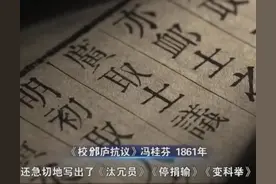 士議
取士
明初取
《校邠庐抗议》冯桂芬 1861年
还急切地写出了《汰冗员》《停捐输》《变科举》